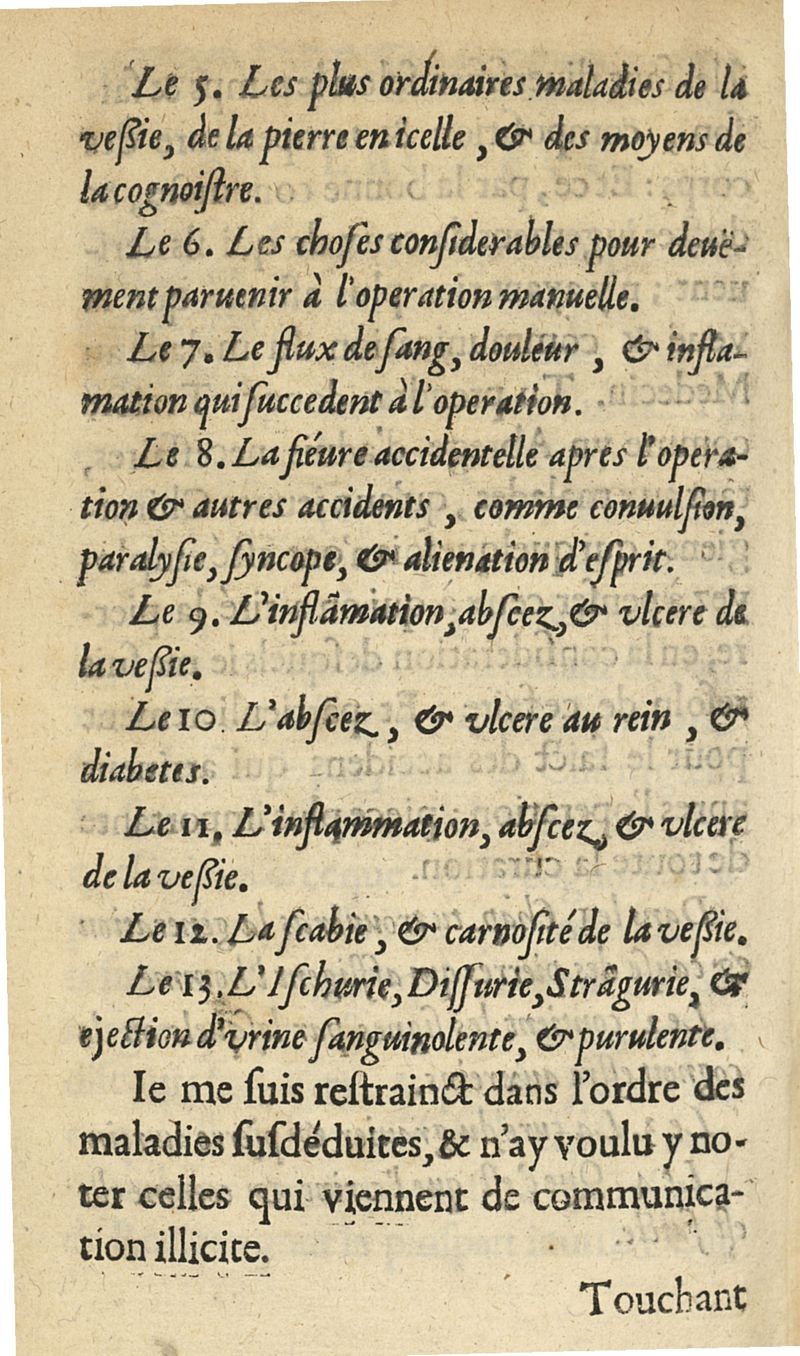 Le 5. Les plus ordinaires maladies de la
veſſie, de la pierre en icelle, & des moyens de
la cognoiſtre.
Le 6. Les choſes conſiderables pour deuë-
ment paruenir à l'operation manuelle.
Le 7. Le flux de ſang, douleur, & infla-
mation qui ſuccedent à l'operation.
Le 8. La fiéure accidentelle apres l'opera-
tion & autres accidents, comme conuulſion,
paralyſie, ſyncope, & alienation d'eſprit.
Le 9. L'inflãmation, abſcez, & vlcere de
la veſſie.
Le 10. L'abſcez, & vlcere au rein, &
diabetes.
Le 11. L'inflammation, abſcez, & vlcere
de la veſſie.
Le 12. La ſcabie, & carnoſité de la veſſie.
Le 13. L'Iſchurie, Diſſurie, Strãgurie, &
ejection d'vrine ſanguinolente, & purulente.
Ie me ſuis reſtrainct dans l'ordre des
maladies ſuſdéduites, & n'ay voulu y no-
ter celles qui viennent de communica-
tion illicite.
Touchant